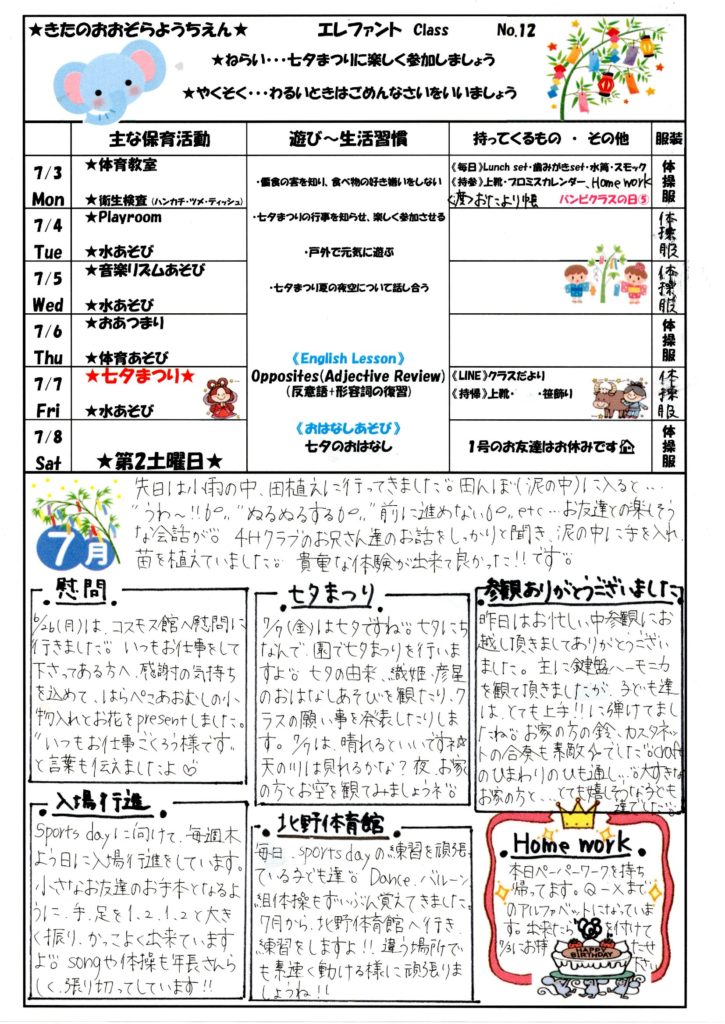 ★きたのおおぞらようちえん★ エレファント Class No.12
★ねらい・・・七夕まつりに楽しく参加しましょう
★やくそく・・・わるいときはごめんなさいをいいましょう
主な保育活動 遊び～生活習慣 持ってくるもの ・ その他 服装
7/3 Mon
★体育教室
★衛生検査 (ハンカチ・ツメ・ティッシュ)
・偏食の害を知り、食べ物の好き嫌いをしない
《毎日》Lunch set・歯みがきset・水筒・スモック
《持参》上靴・プロミスカレンダー、Home work
<渡>おたより帳 バンビクラスの日⑤
体操服
7/4 Tue
★Playroom
★水あそび
・七夕まつりの行事を知らせ、楽しく参加させる
・戸外で元気に遊ぶ
体操服
7/5 Wed
★音楽リズムあそび
★水あそび
・七夕まつり夏の夜空について話し合う
体操服
7/6 Thu
★おあつまり
★体育あそび
《English Lesson》
体操服
7/7 Fri
★七夕まつり★
★水あそび
Opposites(Adjective Review)
(反意語+形容詞の復習)
《LINE》クラスだより
《持帰》上靴・ ・笹飾り
体操服
7/8 Sat
★第2土曜日★
《おはなしあそび》
七夕のおはなし
1号のお友達はお休みです
体操服
7月
先日は小雨の中、田植えに行ってきました。田んぼ(泥の中)に入ると…
"うわ～!!" "ぬるぬるする" "前に進めない" etc…お友達との楽しそう
な会話が。 4Hクラブのお兄さん達のお話をしっかりと聞き、泥の中に手を入れ
苗を植えていました。 貴重な体験が出来て良かった!!です。
慰問
6/26(月)は、コスモス館へ慰問に
行きました。いつもお仕事をして
下さってある方へ、感謝の気持ち
を込めて、はらぺこあおむしの小
物入れとお花をpresentしました。
"いつもお仕事ごくろう様です"
と言葉も伝えましたよ♡
七夕まつり
7/7(金)は七夕ですね。七夕にち
なんで、園で七夕まつりを行いま
すよ。七夕の由来、織姫・彦星
のおはなしあそびを観たり、ク
ラスの願い事を発表したりしま
す。7/7は、晴れるといいですね
天の川は見れるかな？夜、お家
の方とお空を観てみましょうネ。
参観ありがとうございました
昨日はお忙しい中参観にお
越し頂きましてありがとうござい
ました。主に鍵盤ハーモニカ
を観て頂きましたが、子ども達
は、とても上手!!に弾けてまし
たね。お家の方の鈴、カスタネッ
トの合奏も素敵でした。craft
のひまわりのひも通し…大すきな
お家の方と…とても嬉しそうな子ども
達でした。
入場行進
Sports dayに向けて、毎週木
よう日に入場行進をしています。
小さなお友達のお手本となるよ
うに、手、足を1.2.1.2と大き
く振り、かっこよく出来ています
よ。songや体操も年長さんら
しく、張り切っています!!
北野体育館
毎日、sports dayの練習を頑張っ
ている子ども達。Dance、バルーン、
組体操もずいぶん覚えてきました。
7月から、北野体育館へ行き
練習をしますよ!! 違う場所で
も素速く動ける様に頑張りま
しょうね!!
Home work
本日ペーパーワークを持ち
帰ってます。Q－Xまで
のアルファベットになっていま
す。出来たら を付けて
7/3にお持 たせ
下さい
HAPPY BIRTHDAY